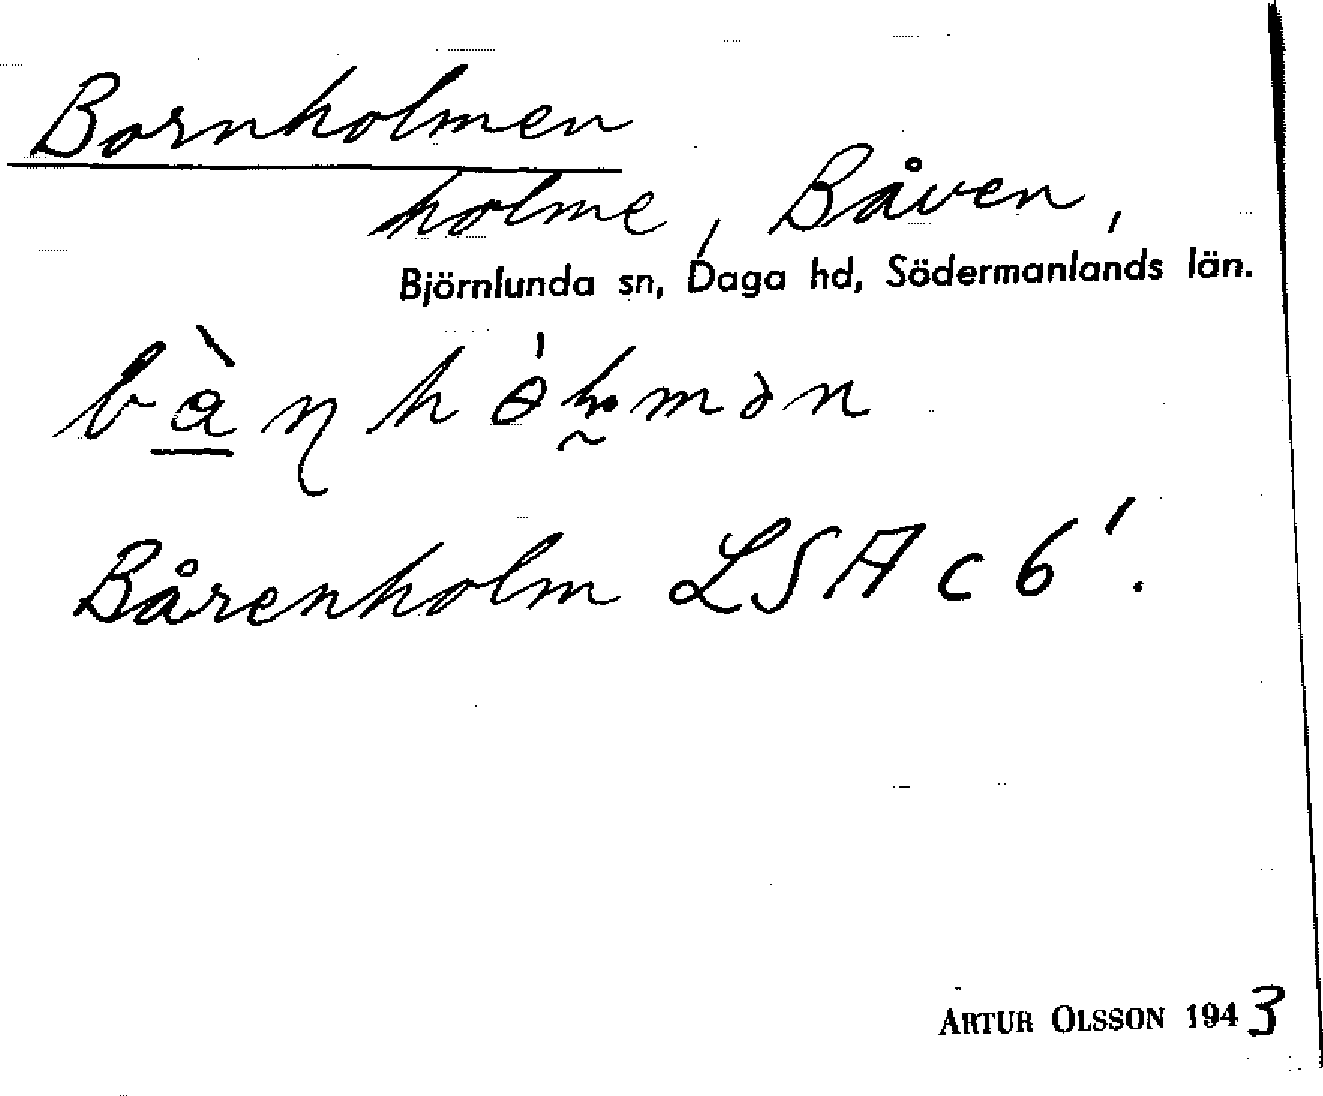 Bornholmen
holme, Båven,
Björnlunda sn, Daga hd, Södermanlands län.
Bårenholm LSA c 6'.
ARTUR OLSSON 1943